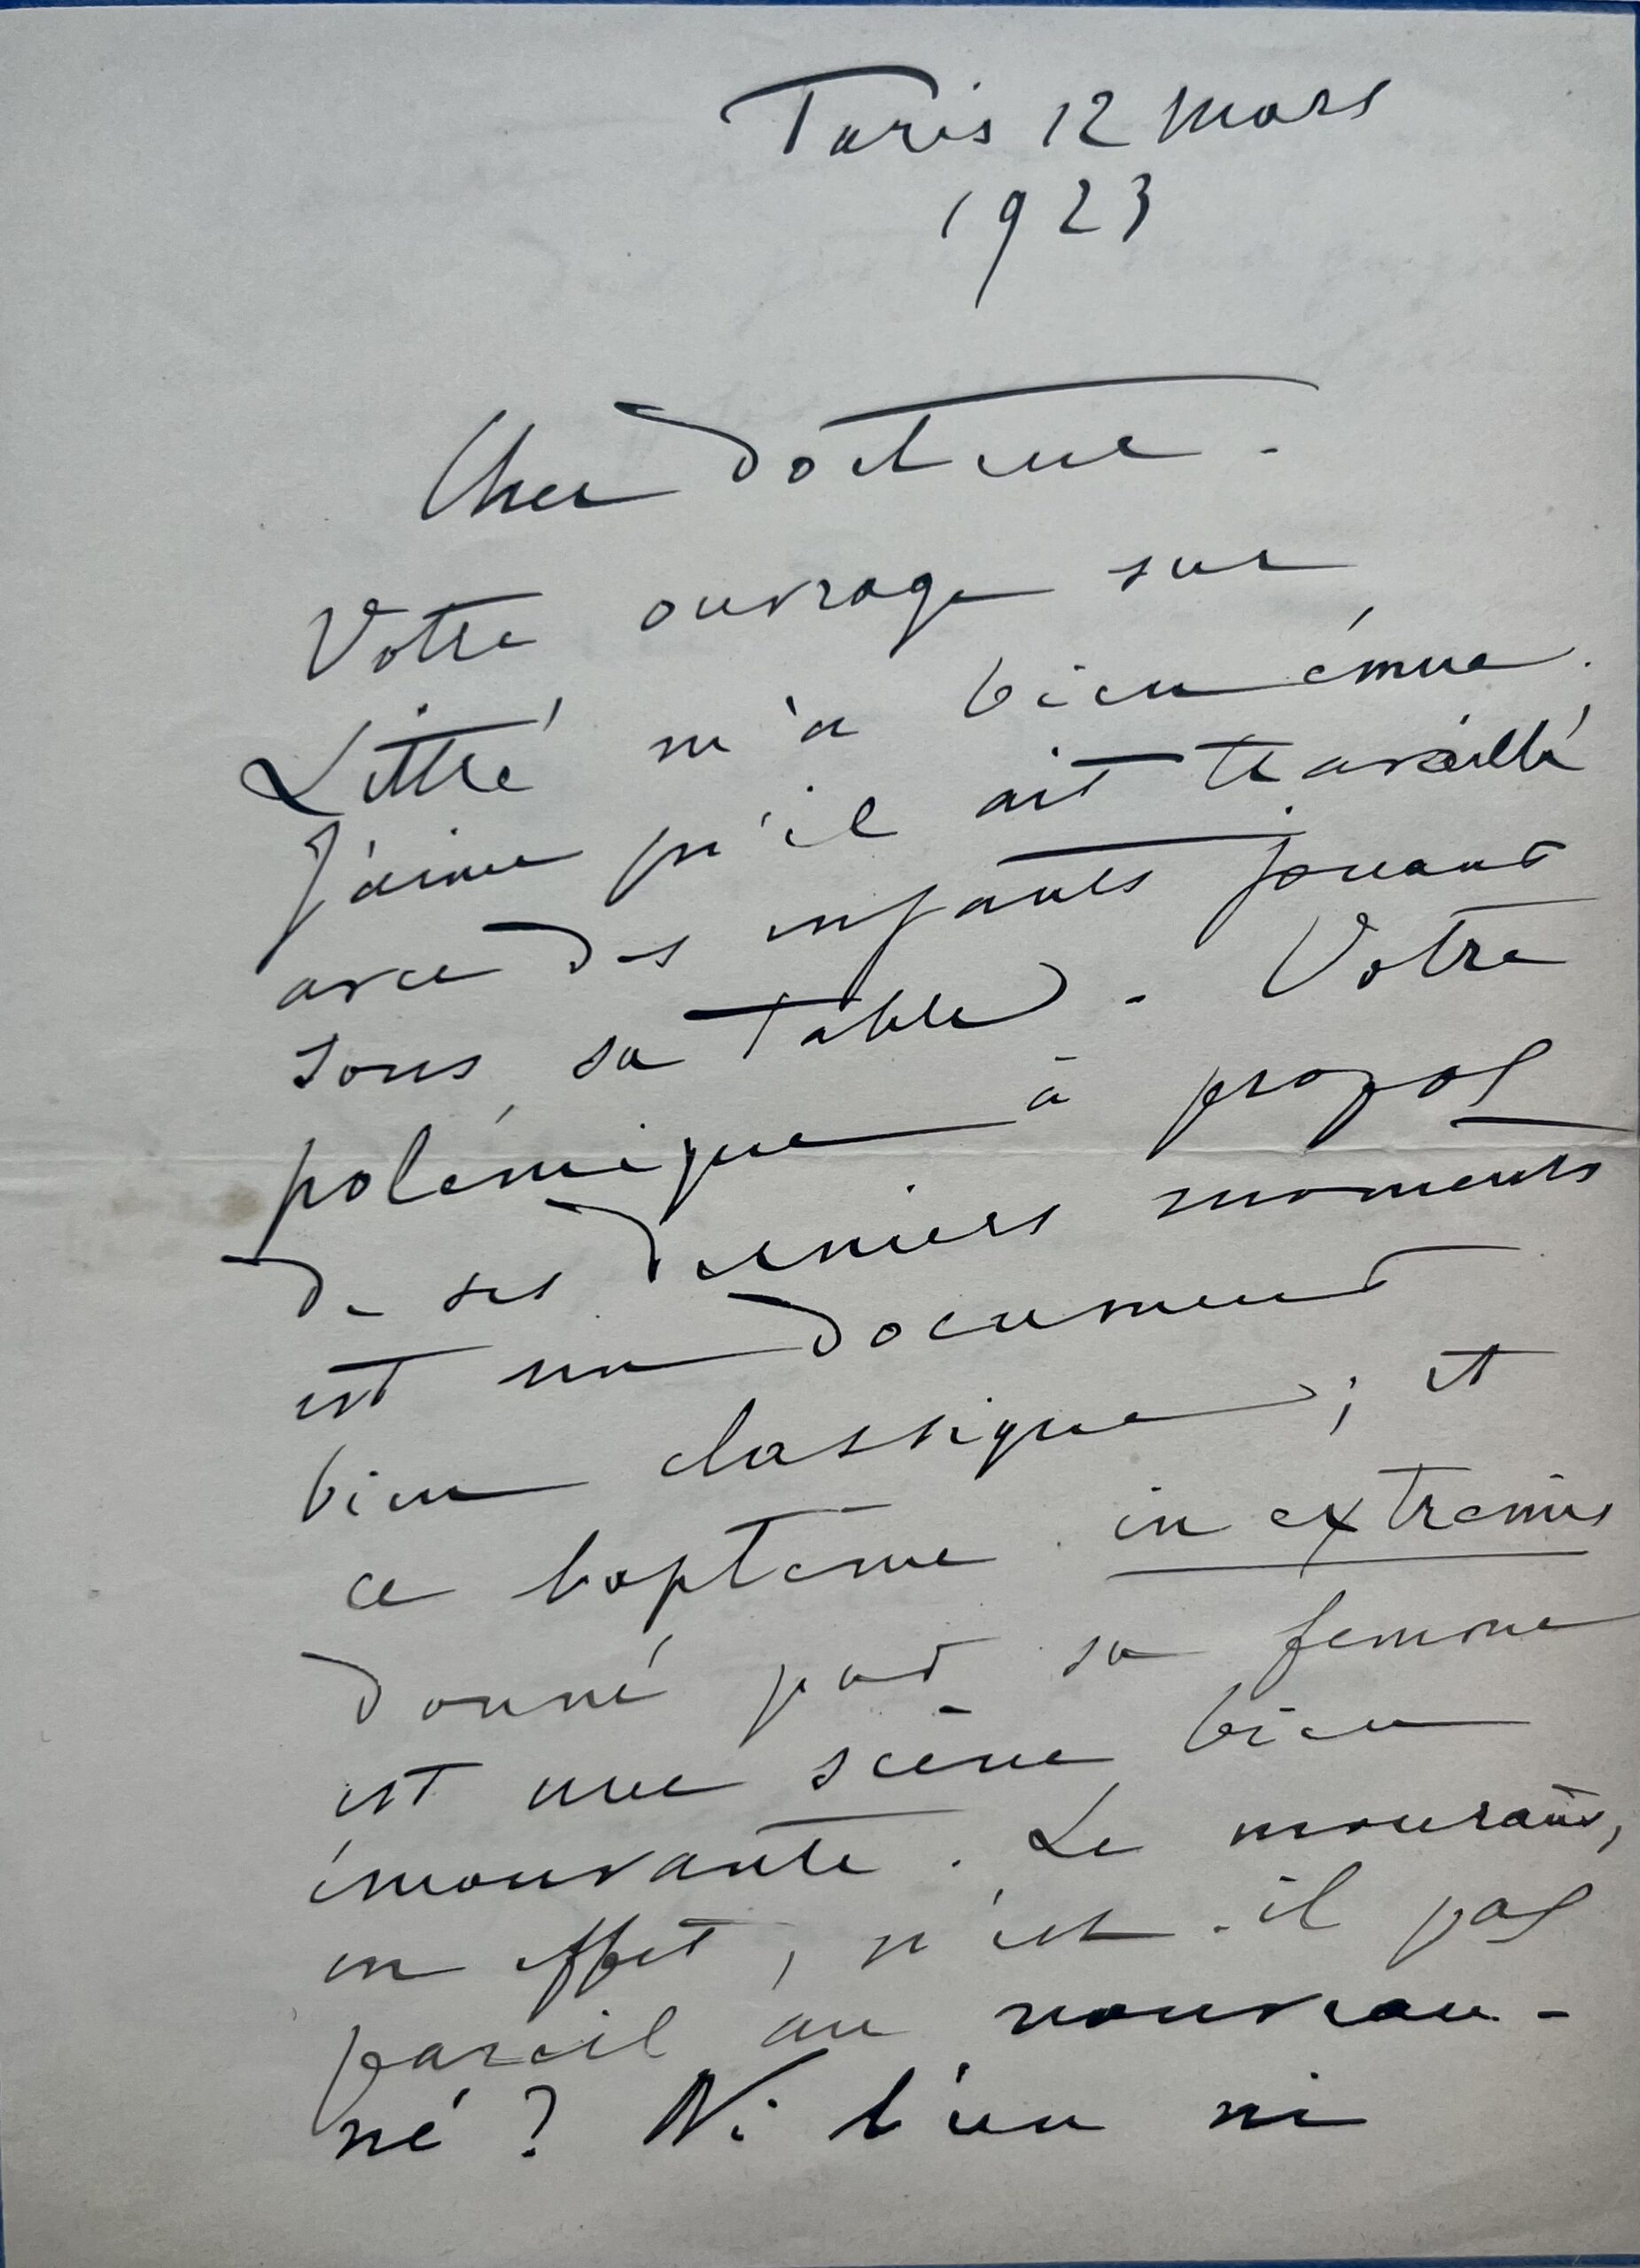 Paris 12 mars
1923
Cher Docteur.
Votre ouvrage sur
Littré m'a bien émue.
J'aime qu'il ait travaillé
avec des enfants jouant
sous sa table. Votre
polémique à propos
de ses derniers moments
est un document
bien classique ; et
ce baptême in extremis
donné par sa femme
est une scène bien
émouvante. Le mourant,
en effet, n'est-il pas
pareil au nouveau-
né ? Ni l'un ni